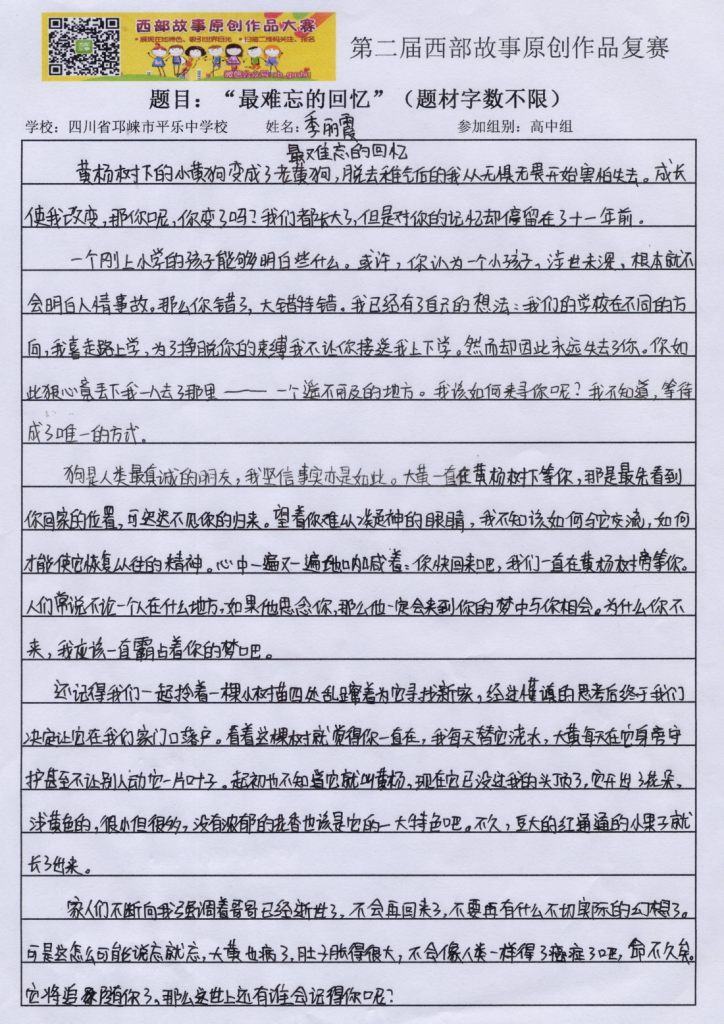 西部故事原创作品大赛
第二届西部故事原创作品复赛
题目：“最难忘的回忆”（题材字数不限）
学校：四川省邛崃市平乐中学校 姓名：季丽霞 参加组别：高中组
最难忘的回忆
黄杨树下的小黄狗变成了老黄狗，脱去稚气后的我从无惧无畏开始害怕失去。成长
使我改变，那你呢，你变了吗？我们都长大了，但是对你的记忆却停留在了十一年前。
一个刚上小学的孩子能够明白些什么。或许，你认为一个小孩子，涉世未深，根本就不
会明白人情事故。那么你错了，大错特错。我已经有了自己的想法：我们的学校在不同的方
向，我喜走路上学，为了挣脱你的束缚我不让你接送我上下学。然而却因此永远失去了你。你如
此狠心竟丢下我一人去了那里——一个遥不可及的地方。我该如何来寻你呢？我不知道，等待
成了唯一的方式。
狗是人类最真诚的朋友，我坚信事实亦是如此。大黄一直在黄杨树下等你，那是最先看到
你回家的位置，可迟迟不见你的归来。望着你难从淡是神的眼睛，我不知该如何与它交流，如何
才能使它恢复从往的精神。心中一遍又一遍地呐喊着：你快回来吧，我们一直在黄杨树旁等你。
人们常说不论一个人在什么地方，如果他思念你，那么他一定会来到你的梦中与你相会。为什么你不
来，我应该一直霸占着你的梦吧。
还记得我们一起拎着一棵小树苗四处乱蹿着为它寻找新家，经过谨慎的思考后终于我们
决定让它在我们家门口落户。看着这棵树就觉得你一直在，我每天替它浇水，大黄每天在它身旁守
护甚至不让别人动它一片叶子。起初也不知道它就叫黄杨，现在它已没过我的头顶了，它开出了花朵，
浅黄色的，很小但很多，没有浓郁的花香也该是它的一大特色吧。不久，豆大的红通通的小果子就
长了出来。
家人们不断向我强调着哥哥已经逝世了，不会再回来了，不要再有什么不切实际的幻想了。
可是这怎么可能说忘就忘，大黄也病了，肚子胀得很大，不会像人类一样得了癌症了吧，命不久矣。
它将追随你了。那么这世上还有谁会记得你呢？